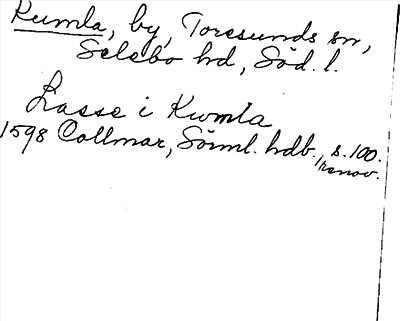 Kumla, by, Toresunds sn,
Selebo hd, Söd. l.
Lasse i Kumla
1598 Collmar, Sörml. hdb., s. 100.
renov.